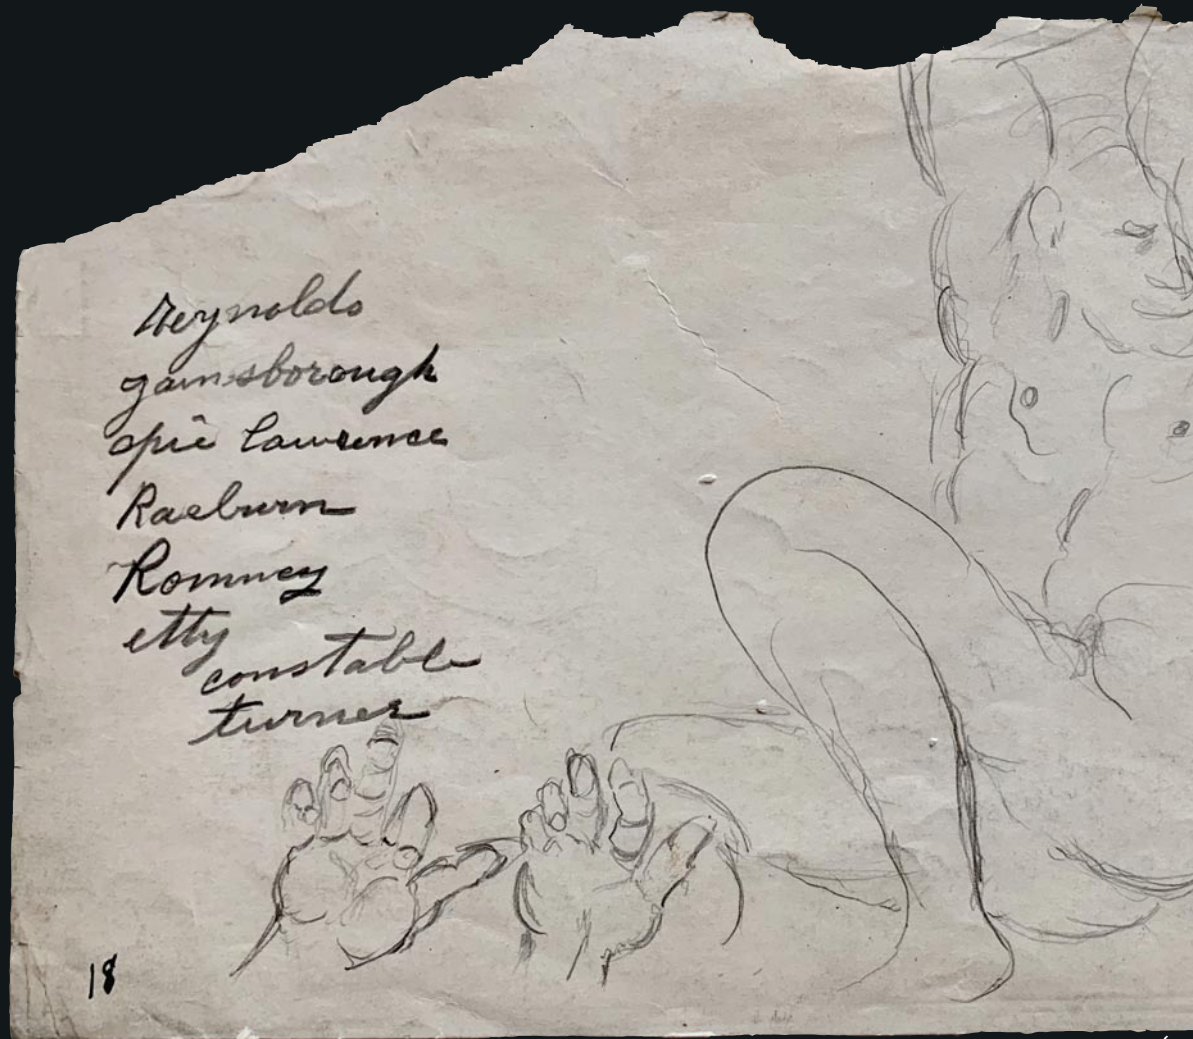 Reynolds
gainsborough
opie lawrence
Raeburn
Romney
etty
constable
turner
18